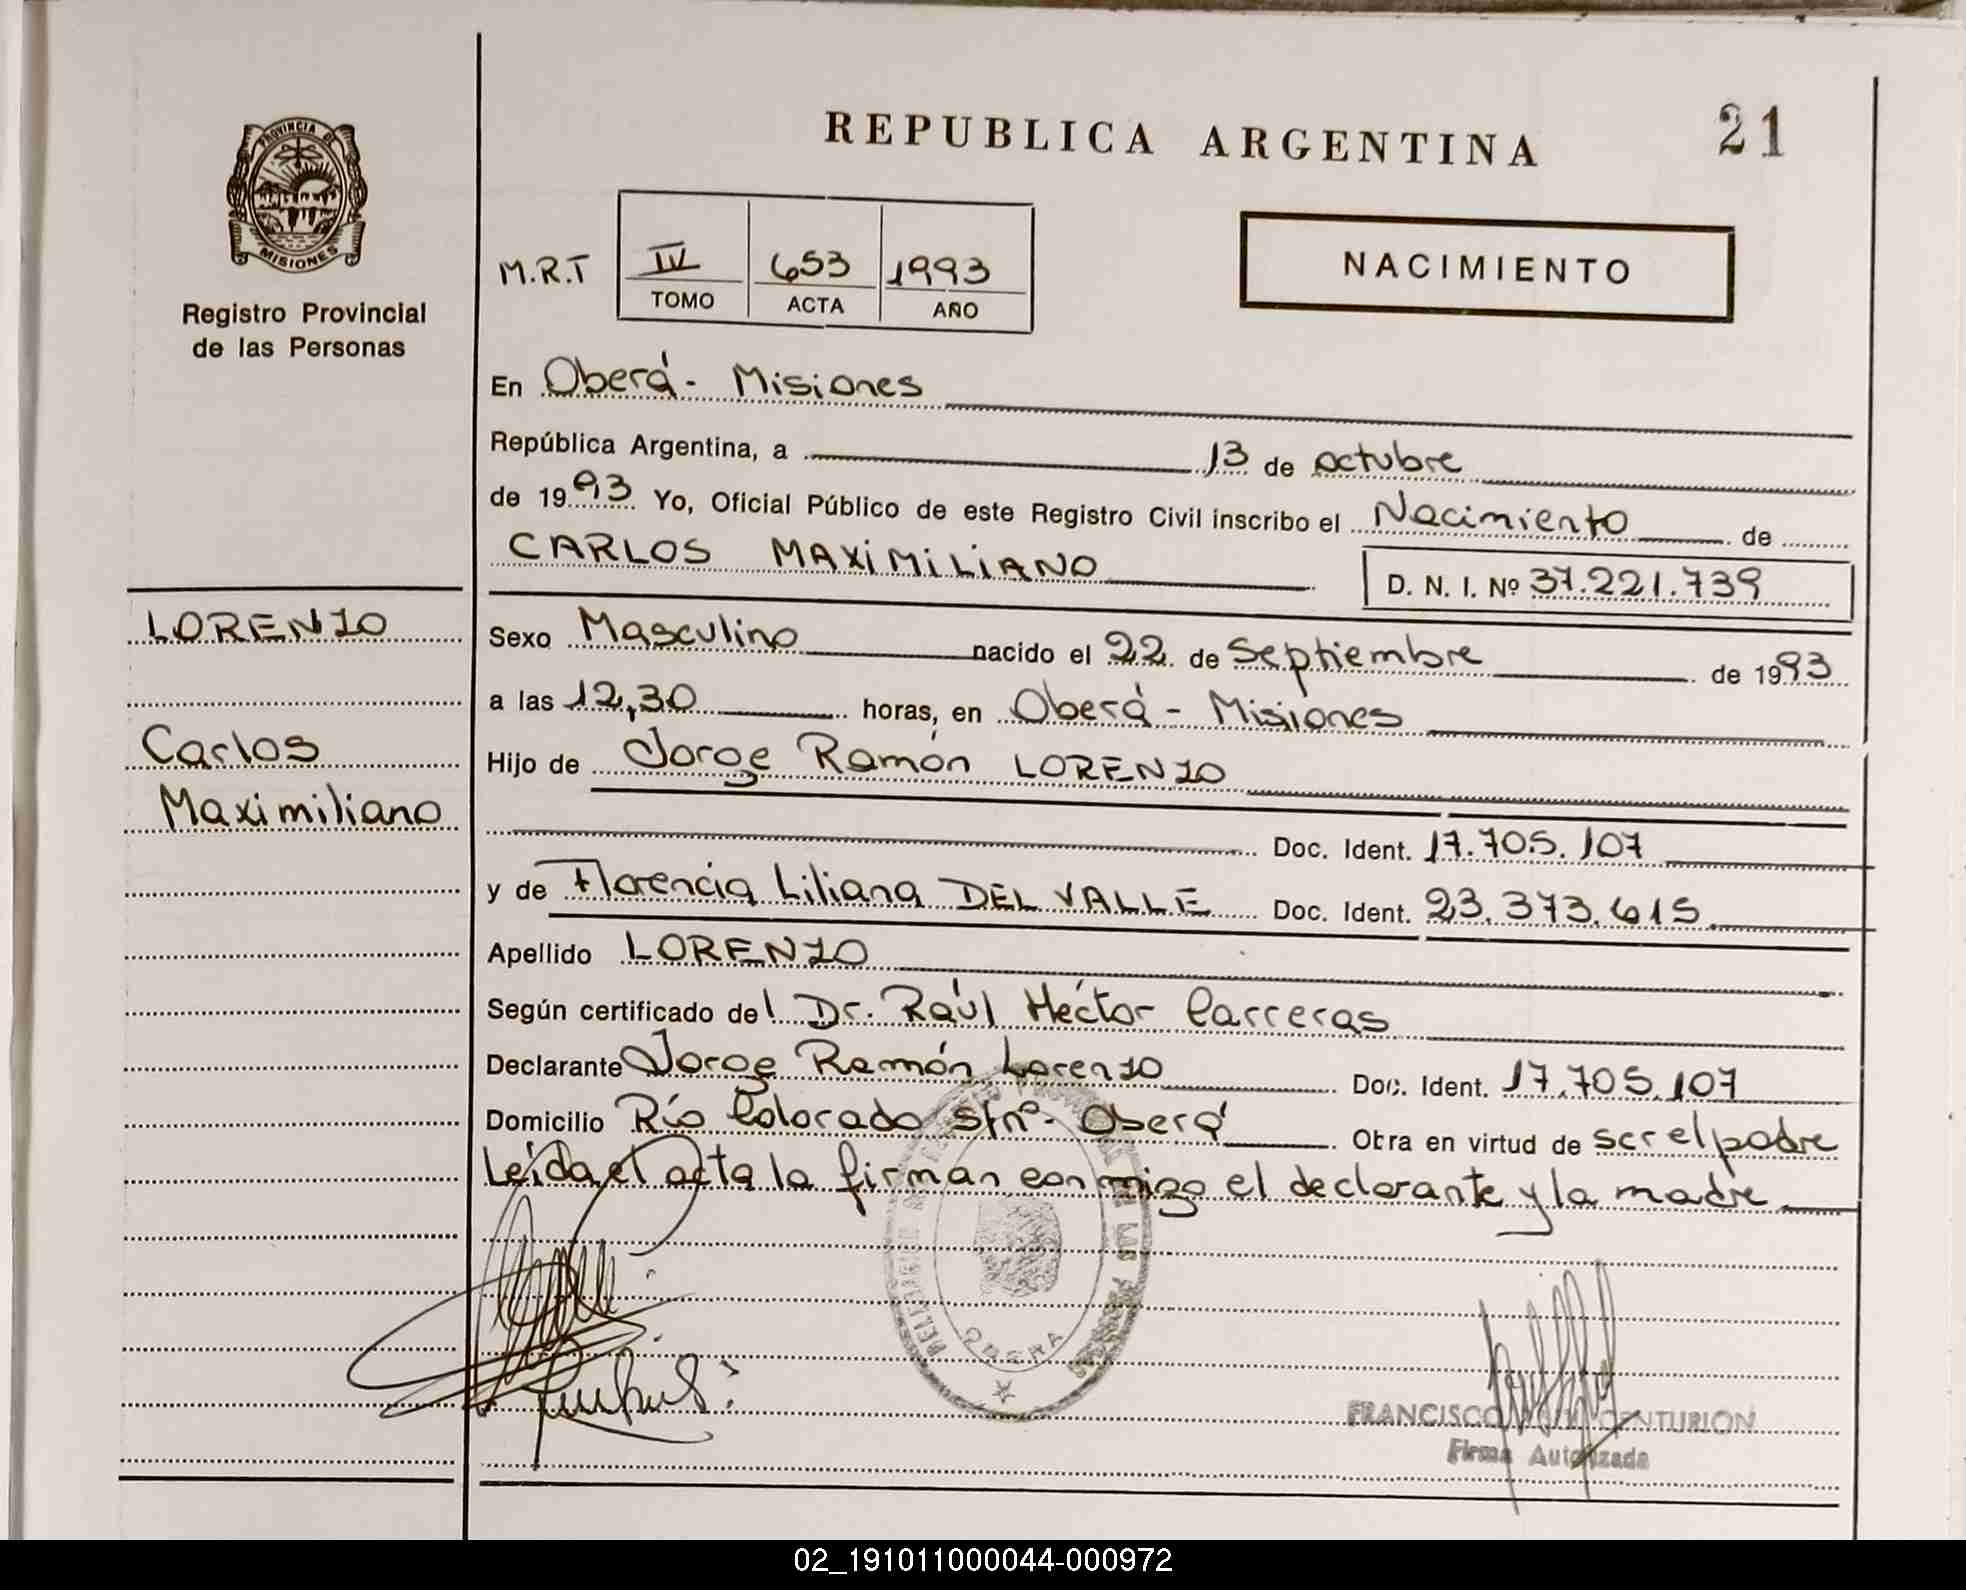 REPUBLICA ARGENTINA
21
PROVINCIA DE
MISIONES
Registro Provincial
de las Personas
M.R.T
IV
TOMO
653
ACTA
1993
AÑO
NACIMIENTO
En Oberá - Misiones
República Argentina, a 13 de octubre
de 1993 Yo, Oficial Público de este Registro Civil inscribo el Nacimiento de
CARLOS MAXIMILIANO
D. N. I. Nº 37.221.739
LORENZO
Carlos
Maximiliano
Sexo Masculino nacido el 22 de Septiembre de 1993
a las 12,30 horas, en Oberá - Misiones
Hijo de Jorge Ramón LORENZO
Doc. Ident. 17.705.107
y de Florencia Liliana DEL VALLE Doc. Ident. 23.373.615
Apellido LORENZO
Según certificado del Dr. Raúl Héctor Carreras
Declarante Jorge Ramón Lorenzo Doc. Ident. 17.705.107
Domicilio Río Colorado s/nº - Oberá Obra en virtud de ser el padre
Leída el acta la firman conmigo el declarante y la madre
OBERA
FRANCISCO CENTURION
Firma Autorizada
02_191011000044-000972